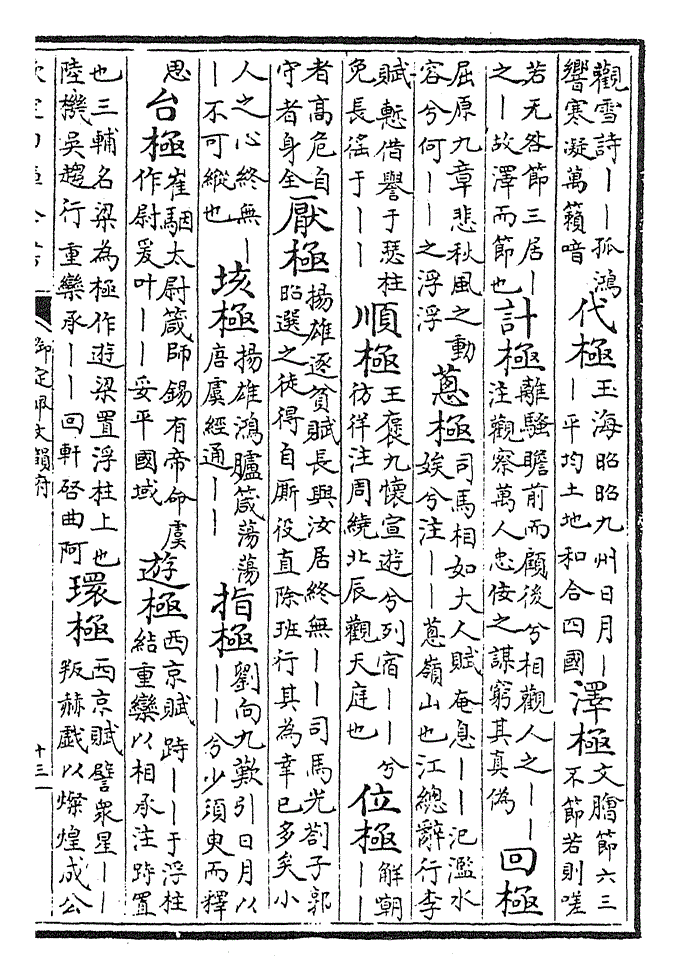 觀雪詩丨丨孤鴻響寒凝萬籟喑 代極 玉海昭昭九州日月丨丨平均土地和合四國 澤極 文膾節六三不節若則嗟
若无咎節三居丨之丨故澤而節也 計極 離騷瞻前而顧後兮相觀人之丨丨注觀察萬人忠佞之謀窮其真偽 回極
屈原九章悲秋風之動容兮何丨丨之浮浮 蔥極 司馬相如大人賦奄息丨丨氾濫水娭兮注丨丨蔥嶺山也江總辭行李
賦慙借譽于瑟柱免長徭于丨丨 順極 王褒九懷宣遊兮列宿丨丨兮彷徉注周繞北辰觀天庭也 位極 解嘲丨丨
者高危自守者身全 厭極 揚雄逐貧賦長與汝居終無丨丨司馬光劄子郭昭選之徒得自厮役直除班行其為幸已多矣小
人之心終無丨丨不可縱也 垓極 揚雄鴻臚箴蕩蕩唐虞經通丨丨 指極 劉向九歎引日月以丨丨兮少須臾而釋
思 台極 崔駰太尉箴師錫有帝命虞作尉爰叶丨丨妥平國域 遊極 西京賦跱丨丨于浮柱結重欒以相承注跱置
也三輔名梁為極作遊梁置浮柱上也陸機吳趨行重欒承丨丨回軒啓曲阿 環極 西京賦譬衆星丨丨叛赫戲以燦煌成公
欽定四庫全書
御定佩文韻府
十三